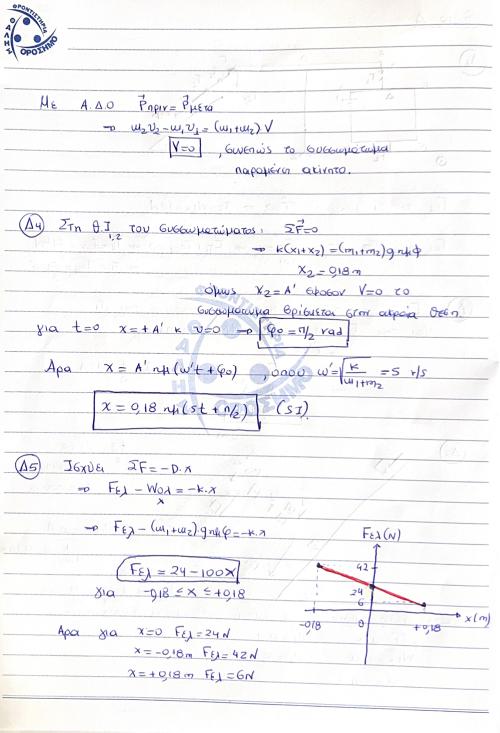 ΦΡΟΝΤΙΣΤΗΡΙΑ
ΘΑΛΗΣ
ΟΡΟΣΗΜΟ
Με Α.Δ.Ο P⃗πριν = P⃗μετα
⇒ m₂υ₂ - m₁υ₁ = (m₁+m₂) V
V=0 , συνεπώς το συσσωμάτωμα
παραμένει ακίνητο.
Δ4 Στη Θ.Ι₁,₂ του συσσωματώματος: ΣF⃗=0
⇒ k(x₁+x₂) = (m₁+m₂)g ημφ
x₂ = 0,18 m
όμως x₂ = A' εφόσον V=0 το
συσσωμάτωμα βρίσκεται στην ακραία θέση
για t=0 x=+A' κ υ=0 → φ₀ = π/2 rad
Άρα x = A' ημ(ω't + φ₀) , όπου ω' = √(k/(m₁+m₂)) = 5 r/s
x = 0,18 ημ(5t + π/2) (SI)
Δ5 Ισχύει ΣF = -D.x
⇒ Fελ - Wολx = -k.x
⇒ Fελ - (m₁+m₂).gημφ = -k.x
Fελ = 24 - 100x
για -0,18 ≤ x ≤ +0,18
Άρα για x=0 Fελ = 24N
x = -0,18m Fελ = 42N
x = +0,18m Fελ = 6N
Fελ(N)
42
24
6
-0,18 0 +0,18 x(m)